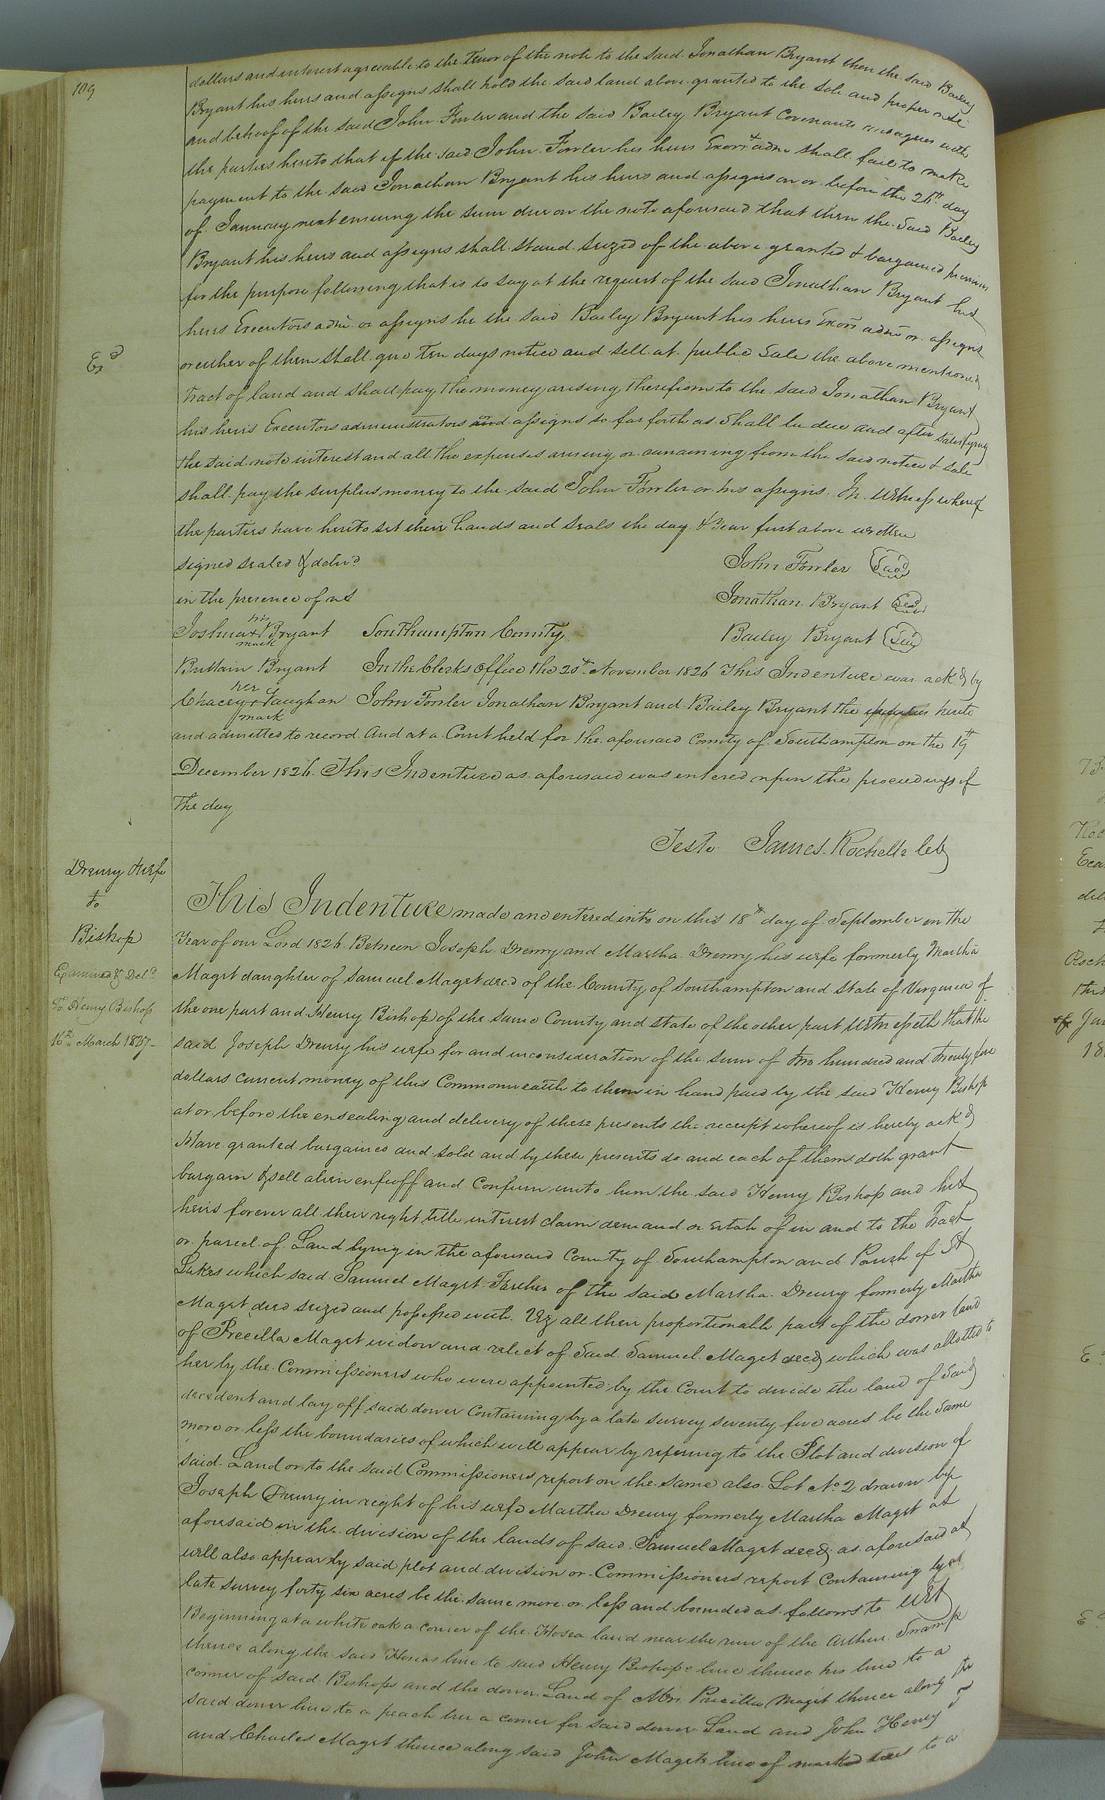 109
dollars and interest agreeable to the tenor of the note to the said Jonathan Bryant then the said Bailey
Bryant his heirs and assigns shall hold the said land above granted to the sole and proper use
and behoof of the said John Fowler and the said Bailey Bryant covenants & agrees with
the parties hereto that if the said John Fowler his heirs Exors & adm shall fail to make
payment to the said Jonathan Bryant his heirs and assigns on or before the 26th day
of January next ensuing the sum due on the note aforesaid that then the said Bailey
Bryant his heirs and assigns shall stand seized of the above granted & bargained premises
for the purpose following that is to say at the request of the said Jonathan Bryant his
heirs Executors adm or assigns he the said Bailey Bryant his heirs Exors adm or assigns
or either of them shall give Ten days notice and sell at public Sale the above mentioned
Exd
tract of land and shall pay the money arising therefrom to the said Jonathan Bryant
his heirs Executors administrators and assigns so far forth as shall be due and after satisfying
the said note interest and all the expenses arising or remaining from the said notice & sale
shall pay the surplus money to the said John Fowler or his assigns. In Witness whereof
the parties have hereto set their hands and seals the day & Year first above written
signed sealed & deliv'd John Fowler Seal
in the presence of us Jonathan Bryant Seal
Joshua his + mark Bryant Southampton County Bailey Bryant Seal
Brittain Bryant In the Clerks office the 20th November 1826 This Indenture was ackd by
Chacey her + mark Vaughan John Fowler Jonathan Bryant and Bailey Bryant the parties hereto
and admitted to record And at a Court held for the aforesaid County of Southampton on the 19th
December 1826. This Indenture as aforesaid was entered upon the proceedings of
the day
Teste James Rochelle Clk
Drewry & wife
to
Bishop
Examined & Deld
To Henry Bishop
16th March 1837
This Indenture made and entered into on this 18th day of September in the
Year of our Lord 1826. Between Joseph Drewry and Martha Drewry his wife formerly Martha
Maget daughter of Samuel Maget decd of the County of Southampton and State of Virginia of
the one part and Henry Bishop of the same County and state of the other part Witnesseth that the
said Joseph Drewry his wife for and in consideration of the sum of two hundred and twenty five
dollars current money of this Commonwealth to them in hand paid by the said Henry Bishop
at or before the ensealing and delivery of these presents the receipt whereof is hereby ackd
Have granted bargained and sold and by these presents do and each of them doth grant
bargain & sell alien enfeoff and confirm unto him the said Henry Bishop and his
heirs forever all their right title interest claim demand or Estate of in and to the Tract
or parcel of Land lying in the aforesaid County of Southampton and Parish of St
Lukes which said Samuel Maget Father of the said Martha Drewry formerly Martha
Maget died seized and possessed with. Viz all their proportionable part of the dower land
of Precilla Maget widow and relict of said Samuel Maget decd which was allotted to
her by the Commissioners who were appointed by the Court to divide the land of said
decedent and lay off said dower containing by a late survey seventy five acres be the same
more or less the boundaries of which will appear by refering to the Plot and division of
said Land or to the said Commissioners report on the same also Lot No 2 drawn by
Joseph Drewry in right of his wife Martha Drewry formerly Martha Maget as
aforesaid in the division of the lands of said Samuel Maget decd as aforesaid as
will also appear by said plot and division or Commissioners report Containing by a
late survey forty six acres be the same more or less and bounded as follows to Wit
Beginning at a white oak a corner of the Hosea land near the run of the Arthur Swamp
thence along the said Hoseas line to said Henry Bishops line thence his line to a
corner of said Bishops and the dower Land of Mrs. Priscilla Maget thence along the
said dower line to a peach tree a corner for said dower Land and John Henry
and Charles Maget thence along said John Magets line of marked trees to a